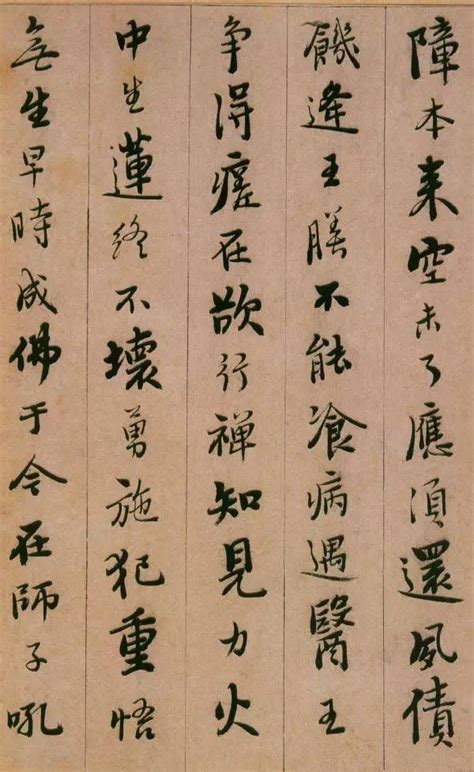 障本来空未了應須還夙債
饑逢王膳不能飡病遇醫王
争得瘥在欲行禪知見力火
中生蓮終不壞勇施犯重悟
無生早時成佛于今在師子吼